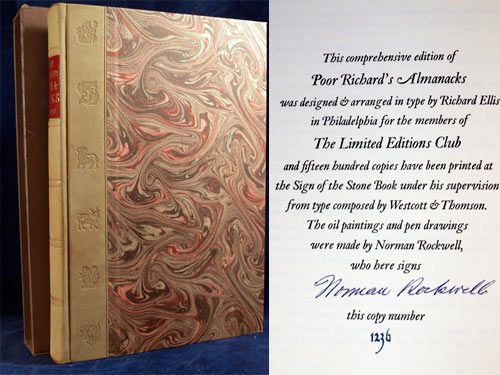 This comprehensive edition of
Poor Richard's Almanacks
was designed & arranged in type by Richard Ellis
in Philadelphia for the members of
The Limited Editions Club
and fifteen hundred copies have been printed at
the Sign of the Stone Book under his supervision
from type composed by Westcott & Thomson.
The oil paintings and pen drawings
were made by Norman Rockwell,
who here signs
Norman Rockwell
this copy number
1236